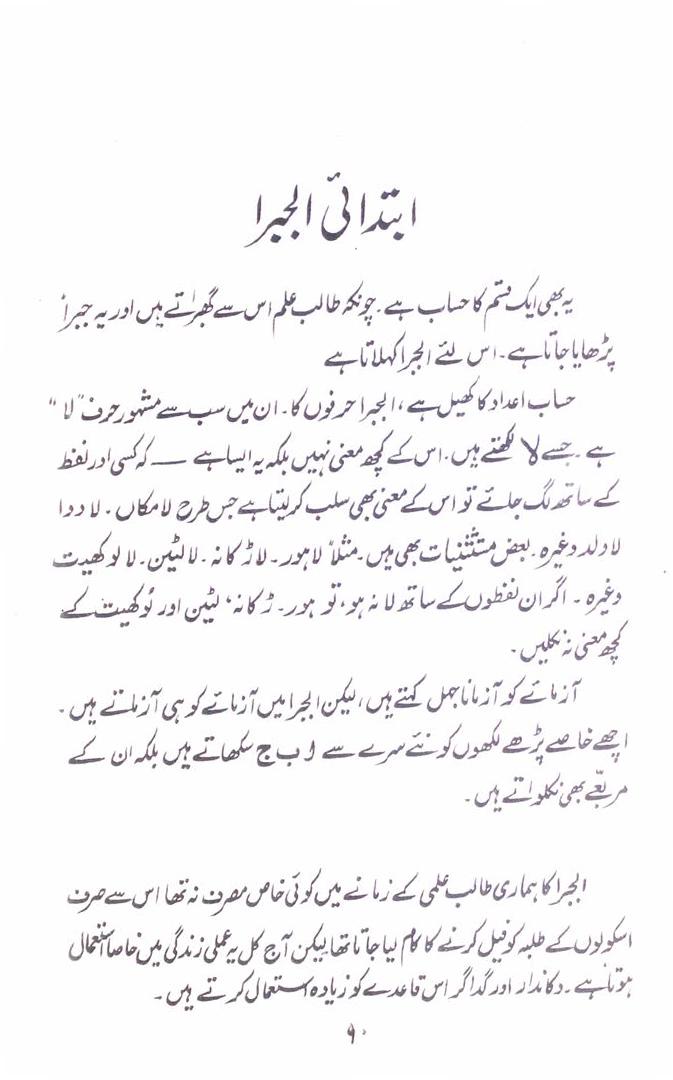 ابتدائی الجبرا
یہ بھی ایک قسم کا حساب ہے۔ چونکہ طالب علم اس سے گھبراتے ہیں اور یہ جبراً
پڑھایا جاتا ہے۔ اس لئے الجبرا کہلاتا ہے
حساب اعداد کا کھیل ہے، الجبرا حرفوں کا۔ ان میں سب سے مشہور حرف "لا"
ہے۔ جسے لا لکھتے ہیں۔ اس کے کچھ معنی نہیں بلکہ یہ ایسا ہے — کہ کسی اور لفظ
کے ساتھ لگ جائے تو اس کے معنی بھی سلب کر لیتا ہے جس طرح لا مکاں۔ لا دوا
لا ولد وغیرہ۔ بعض مستثنیات بھی ہیں۔ مثلاً لاہور۔ لاڑکانہ۔ لالٹین۔ لالو کھیت
وغیرہ۔ اگر ان لفظوں کے ساتھ لا نہ ہو، تو ہور۔ ڑکانہ، لٹین اور لُو کھیت کے
کچھ معنی نہ نکلیں۔
آزمائے کو آزمانا جہل کہتے ہیں، لیکن الجبرا میں آزمائے کو ہی آزماتے ہیں۔
اچھے خاصے پڑھے لکھوں کو نئے سرے سے ا ب ج سکھاتے ہیں بلکہ ان کے
مربّعے بھی نکلواتے ہیں۔
الجبرا کا ہماری طالب علمی کے زمانے میں کوئی خاص مصرف نہ تھا اس سے صرف
اسکولوں کے طلبہ کو فیل کرنے کا کام لیا جاتا تھا لیکن آج کل یہ عملی زندگی میں خاصا استعمال
ہوتا ہے۔ دکاندار اور گداگر اس قاعدے کو زیادہ استعمال کرتے ہیں۔
۹۰